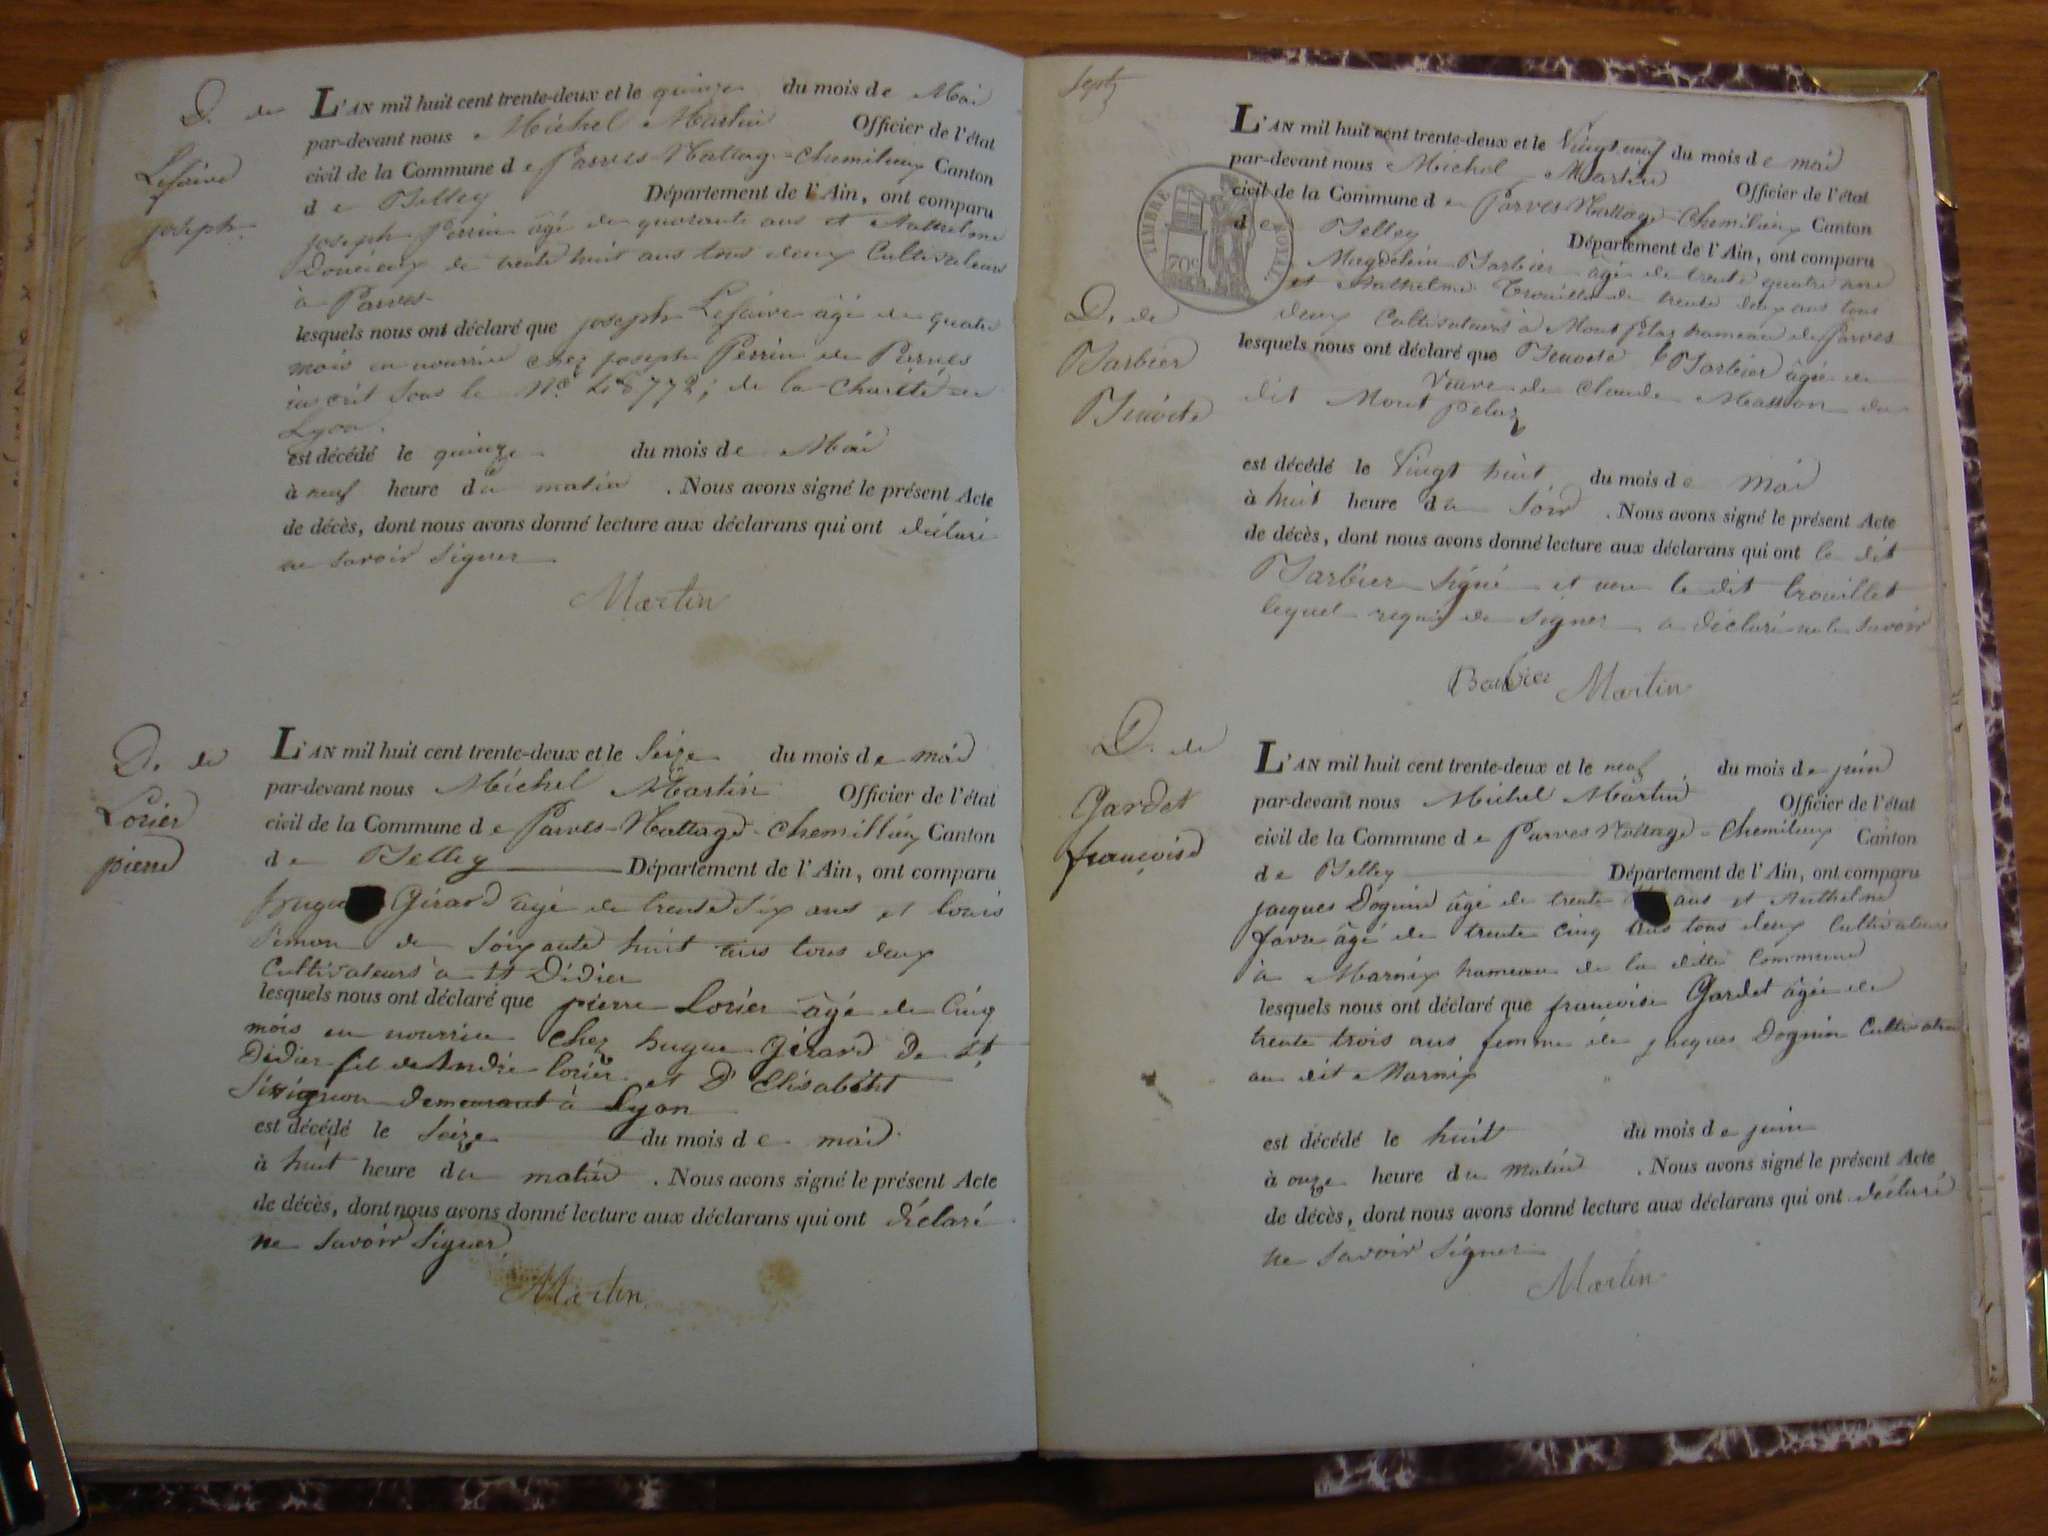 D. de
Lefaivre
joseph.
L'AN mil huit cent trente-deux et le quinze du mois de Mai
par-devant nous Michel Martin Officier de l'état
civil de la Commune de Parves-Nattage-Chemilieux Canton
de Belley Département de l'Ain, ont comparu
joseph Perrin âgé de quarante ans et Anthelme
de trente huit ans tous deux Cultivateurs
à Parves
lesquels nous ont déclaré que joseph Lefaivre âgé de quatre
mois en nourrice chez joseph Perrin de Parves
inscrit sous le Nº 48772; de la Charité de
Lyon.
est décédé le quinze du mois de Mai
à neuf heure du matin . Nous avons signé le présent Acte
de décès, dont nous avons donné lecture aux déclarans qui ont déclaré
ne savoir signer
Martin
D. de
Lorier
pierre
L'AN mil huit cent trente-deux et le seize du mois de mai
par-devant nous Michel Martin Officier de l'état
civil de la Commune de Parves-Nattage-Chemillieux Canton
de Belley Département de l'Ain, ont comparu
hugue Girard âgé de trente six ans et Louis
Simon de soixante huit ans tous deux
Cultivateurs à St Didier
lesquels nous ont déclaré que pierre Lorier âgé de Cinq
mois en nourrice chez hugue Girard De St
Didier fils de André lorier et D' Elisabeth
demeurant à Lyon
est décédé le seize du mois de mai
à huit heure du matin . Nous avons signé le présent Acte
de décès, dont nous avons donné lecture aux déclarans qui ont déclaré
ne savoir signer
Martin
Sept
TIMBRE ROYAL
70c
D. de
Barbier
Benoite
L'AN mil huit cent trente-deux et le Vingt neuf du mois de mai
par-devant nous Michel Martin Officier de l'état
civil de la Commune de Parves-Nattage-Chemilieux Canton
de Belley Département de l'Ain, ont comparu
Magdelein Barbier âgé de trente quatre ans
et Anthelme Trouillet de trente deux ans tous
deux Cultivateurs à Mont pelaz hameau de Parves
lesquels nous ont déclaré que Benoite Barbier âgée de
Veuve de Claude Masson du
dit Mont Pelaz
est décédé le Vingt huit du mois de mai
à huit heure du soir . Nous avons signé le présent Acte
de décès, dont nous avons donné lecture aux déclarans qui ont le dit
Barbier signé et non le dit trouillet
lequel requis de signer a déclaré ne le savoir
Barbier Martin
D. de
Gardet
françoise
L'AN mil huit cent trente-deux et le neuf du mois de juin
par-devant nous Michel Martin Officier de l'état
civil de la Commune de Parves Nattage-Chemilieux Canton
de Belley Département de l'Ain, ont comparu
jacques Dognin âgé de trente ans et Anthelme
favre âgé de trente cinq ans tous deux Cultivateurs
à Marnix hameau de la dite Commune
lesquels nous ont déclaré que françoise Gardet âgée de
trente trois ans femme de jacques Dognin Cultivateur
au dit Marnix
est décédé le huit du mois de juin
à onze heure du matin . Nous avons signé le présent Acte
de décès, dont nous avons donné lecture aux déclarans qui ont déclaré
ne savoir signer
Martin